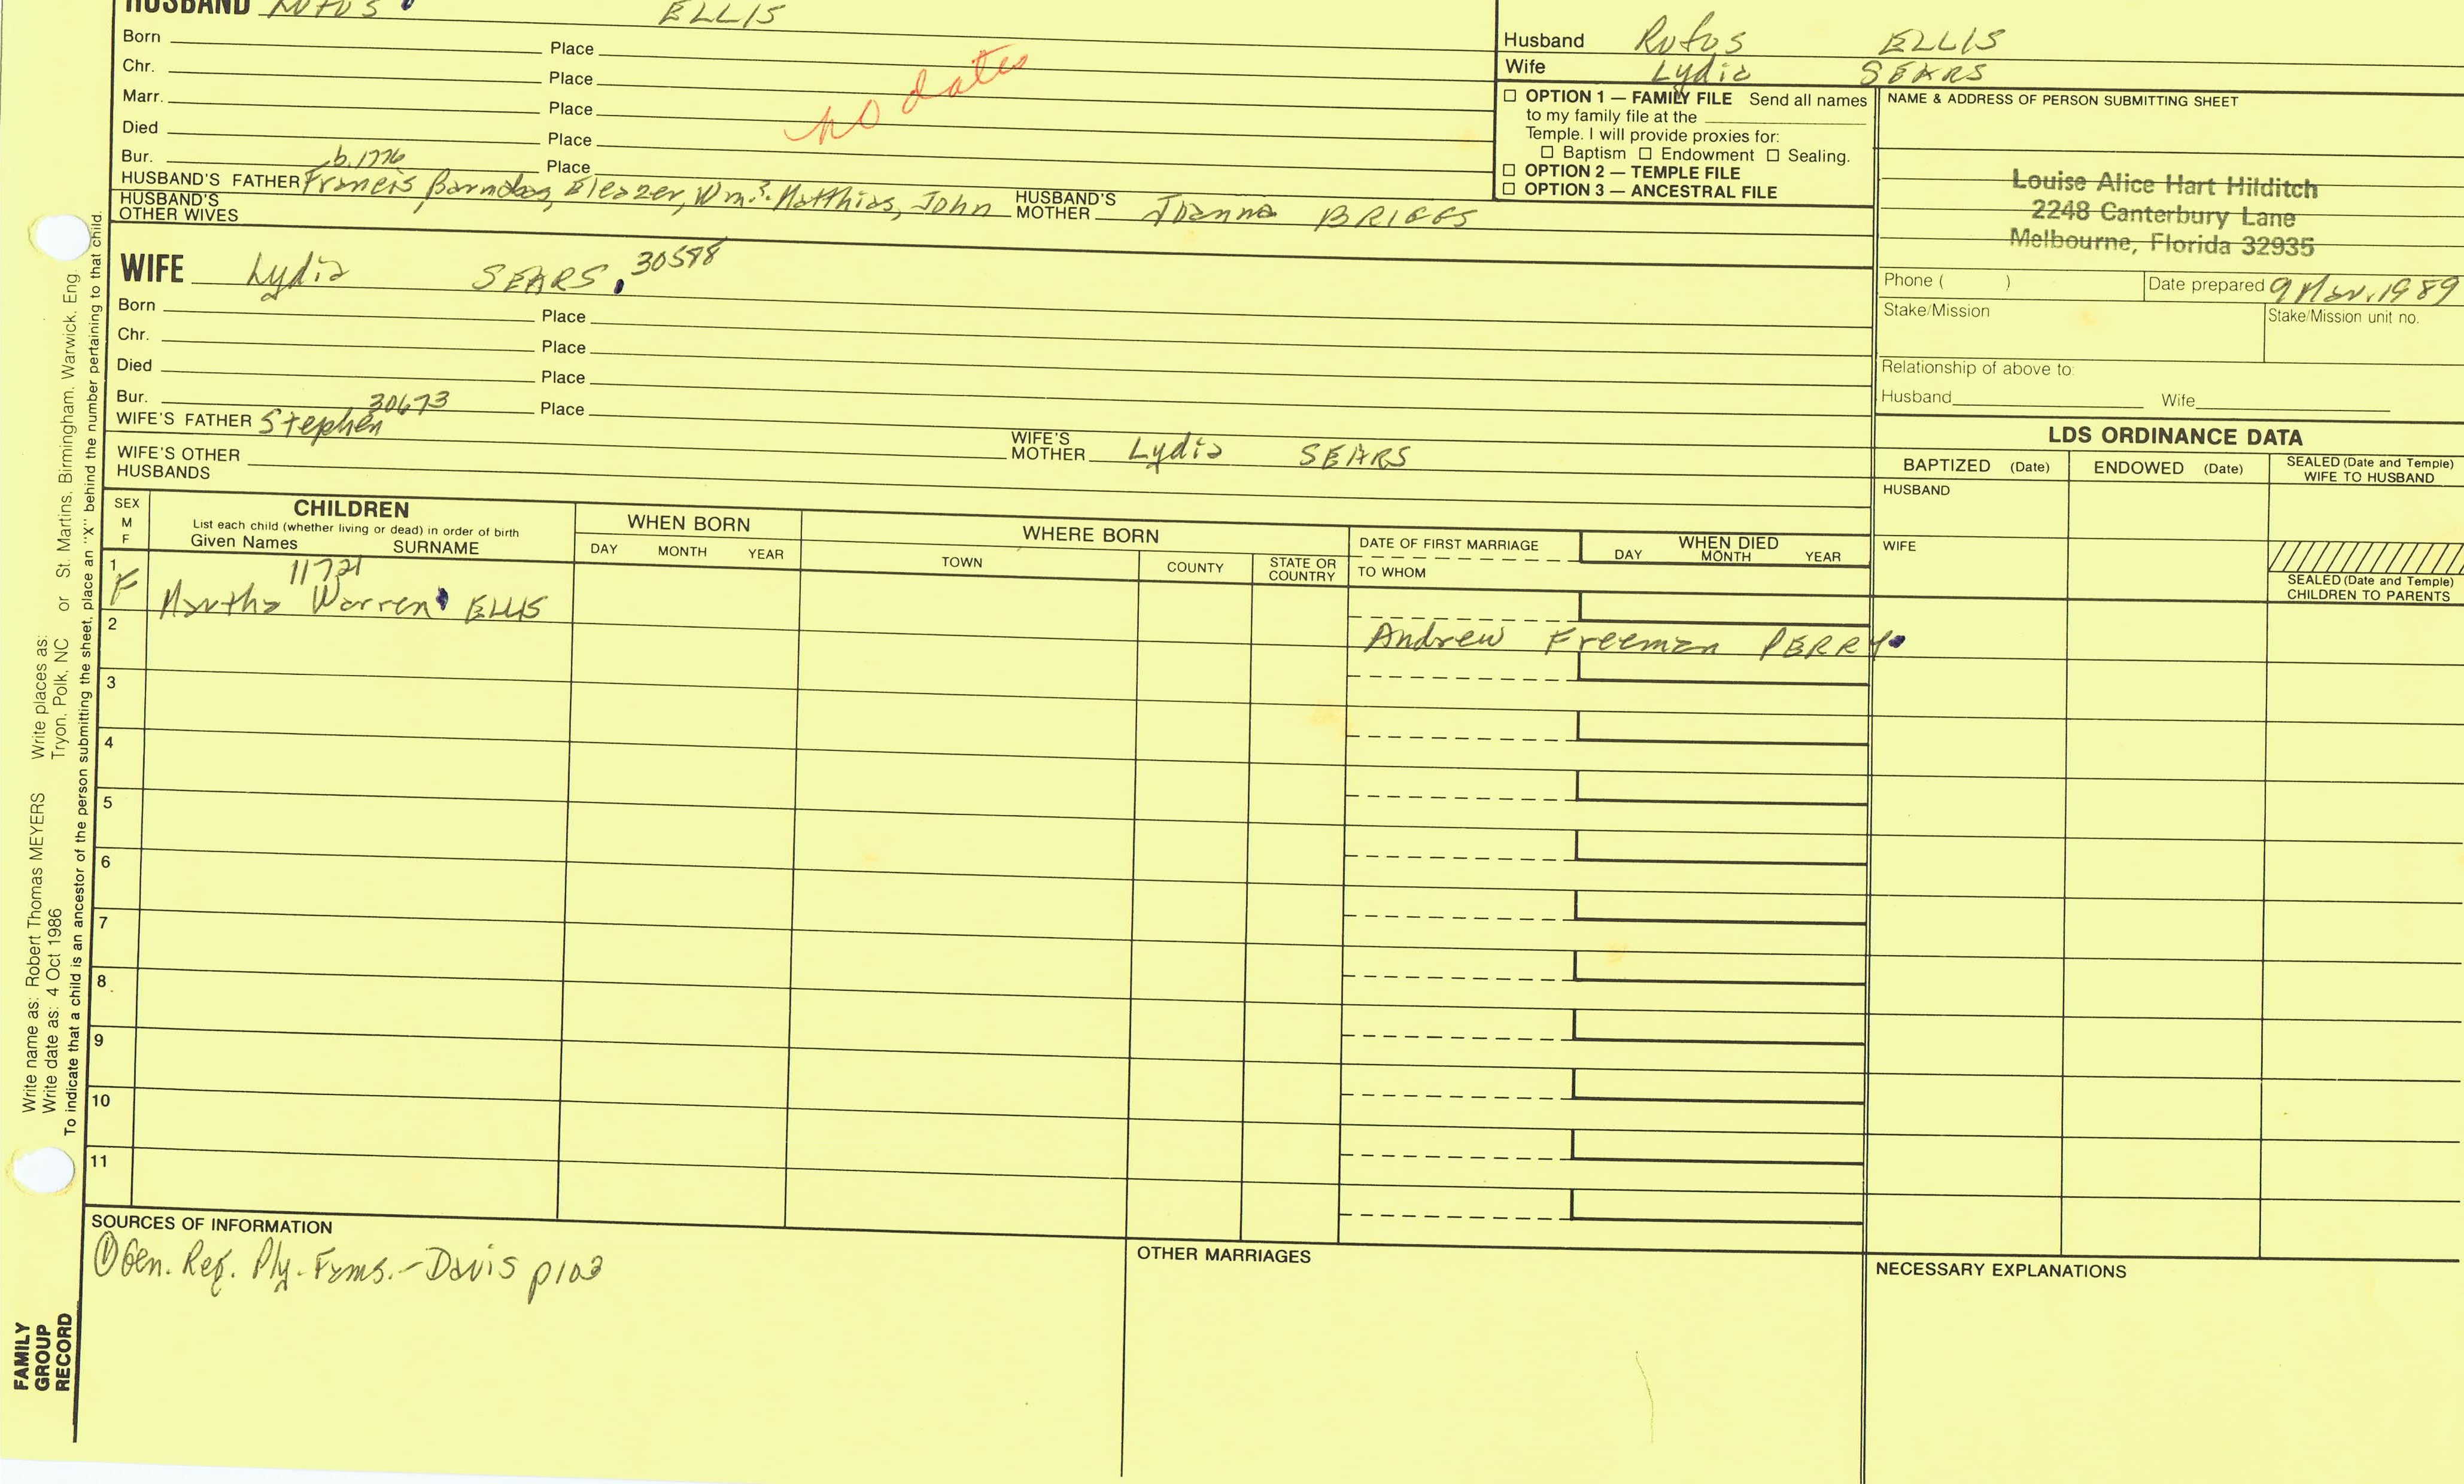 HUSBAND Rufus ELLIS
Born Place
Chr. Place
Marr. Place
Died Place
Bur. Place
no dates
b. 1776
HUSBAND'S FATHER Francis, Barnabas, Eleazer, Wm.3, Matthias, John HUSBAND'S MOTHER Joanna BRIGGS
HUSBAND'S OTHER WIVES
Husband Rufus ELLIS
Wife Lydia SEARS
☐ OPTION 1 — FAMILY FILE Send all names
to my family file at the
Temple. I will provide proxies for:
☐ Baptism ☐ Endowment ☐ Sealing.
☐ OPTION 2 — TEMPLE FILE
☐ OPTION 3 — ANCESTRAL FILE
NAME & ADDRESS OF PERSON SUBMITTING SHEET
Louise Alice Hart Hilditch
2248 Canterbury Lane
Melbourne, Florida 32935
Phone ( ) Date prepared 9 Mar. 1989
Stake/Mission Stake/Mission unit no.
Relationship of above to:
Husband Wife
WIFE Lydia SEARS 30598
Born Place
Chr. Place
Died Place
Bur. Place
30673
WIFE'S FATHER Stephen WIFE'S MOTHER Lydia SEARS
WIFE'S OTHER HUSBANDS
LDS ORDINANCE DATA
BAPTIZED (Date) ENDOWED (Date) SEALED (Date and Temple) WIFE TO HUSBAND
HUSBAND
WIFE
SEALED (Date and Temple) CHILDREN TO PARENTS
SEX M F
CHILDREN
List each child (whether living or dead) in order of birth
Given Names SURNAME
WHEN BORN
DAY MONTH YEAR
WHERE BORN
TOWN COUNTY STATE OR COUNTRY
DATE OF FIRST MARRIAGE
TO WHOM
WHEN DIED
DAY MONTH YEAR
1 F 11721
Martha Warren ELLIS
Andrew Freeman PERRY
2
3
4
5
6
7
8
9
10
11
SOURCES OF INFORMATION
① Gen. Reg. Ply. Fams. - Davis p102
OTHER MARRIAGES
NECESSARY EXPLANATIONS
Write name as: Robert Thomas MEYERS Write places as:
Write date as: 4 Oct 1986 Tryon, Polk, NC or St. Martins, Birmingham, Warwick, Eng.
To indicate that a child is an ancestor of the person submitting the sheet, place an "X" behind the number pertaining to that child.
FAMILY
GROUP
RECORD